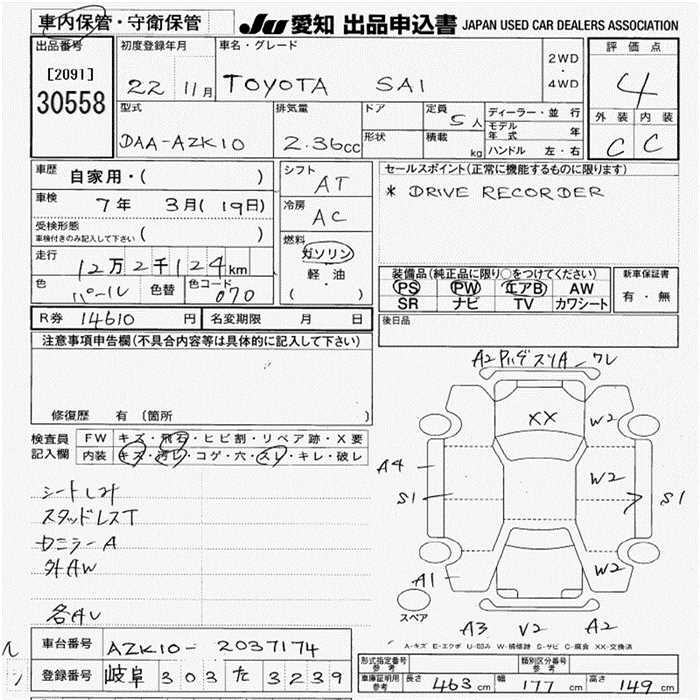 車内保管・守衛保管
JU 愛知 出品申込書 JAPAN USED CAR DEALERS ASSOCIATION
出品番号
[2091]
30558
初度登録年月
22 11月
車名・グレード
TOYOTA SAI
2WD
・
4WD
評価点
4
外装 内装
C C
型式
DAA-AZK10
排気量
2.36cc
ドア
形状
定員
5人
積載
kg
ディーラー・並行
モデル年式 年
ハンドル 左・右
車歴
自家用・( )
車検
7年 3月(19日)
受検形態
車検付きのみ記入して下さい ( )
走行
12万2千124km
色
パール
色替
色コード
070
シフト
AT
冷房
AC
燃料
ガソリン
軽・油
( )
セールスポイント(正常に機能するものに限ります)
* DRIVE RECORDER
装備品(純正品に限り○をつけてください)
PS PW エアB AW
SR ナビ TV カワシート
新車保証書
有・無
R券 14610 円
名変期限 月 日
後日品
注意事項申告欄(不具合内容等は具体的に記入して下さい)
修復歴 有 (箇所
検査員
記入欄
FW キズ・飛石・ヒビ割・リペア跡・X要
内装 キズ・汚レ・コゲ・穴・スレ・キレ・破レ
スタッドレスT
外AW
A2
XX
W2
A4
W2
S1
S1
A1
W2
スペア
A3 V2 A2
A-キズ E-エクボ U-凹み W-補修跡 S-サビ C-腐食 XX-交換済
車台番号
AZK10-2037174
登録番号
岐阜 303 た 3239
形式指定番号
参考
類別区分番号
参考
車庫証明用
参考
長さ 463cm
幅 177cm
高さ 149cm